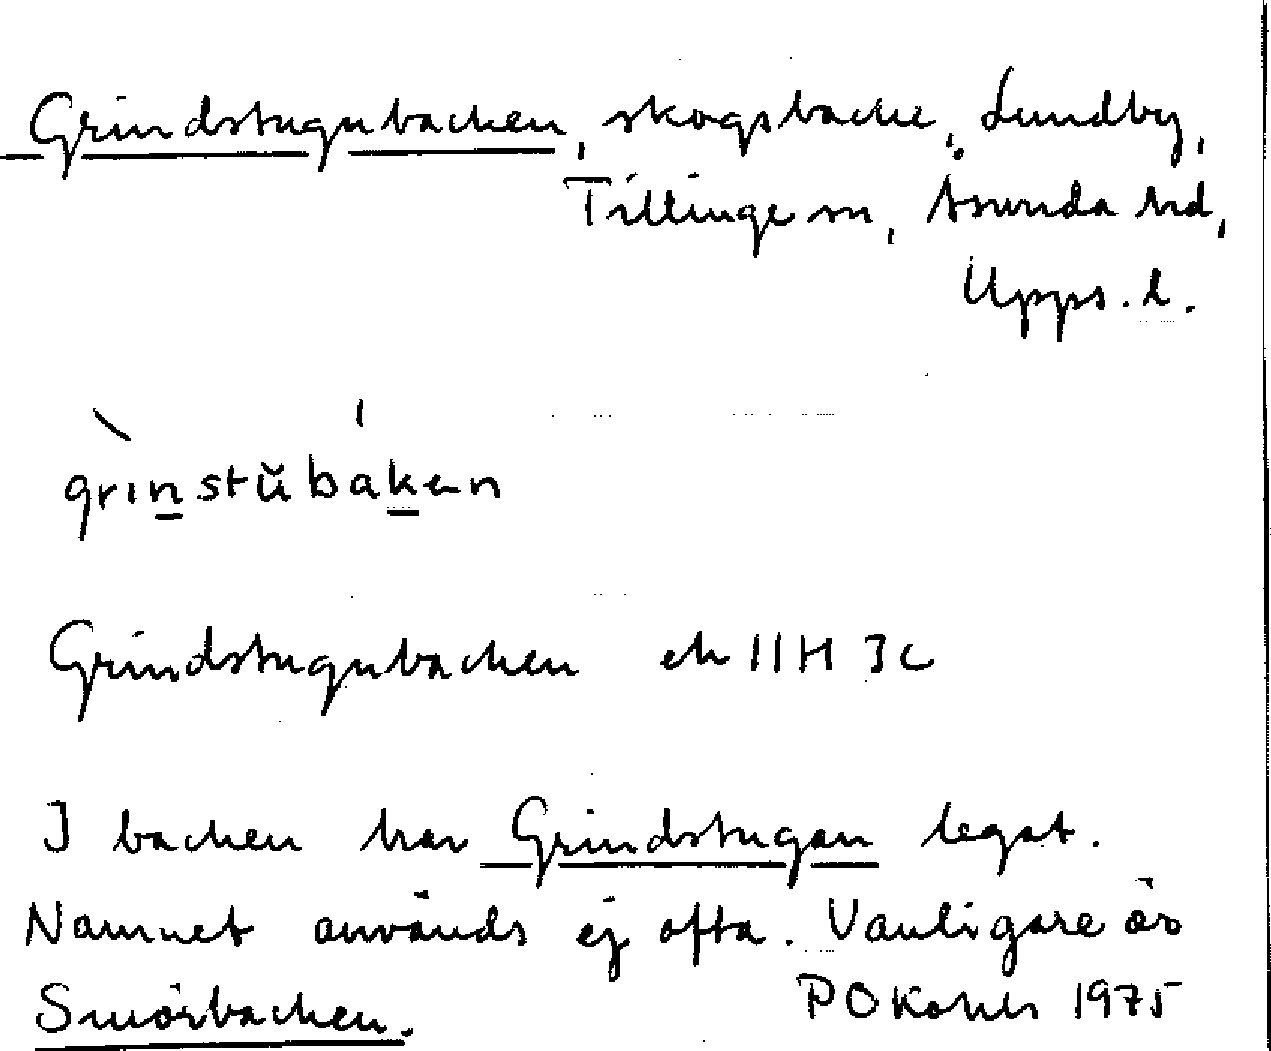 Grindstugubacken, skogsbacke, Lundby,
Tillinge sn, Åsunda hd,
Upps. l.
grinstŭbaken
Grindstugubacken ek 11H 3c
I backen har Grindstugan legat.
Namnet används ej ofta. Vanligare är
Smörbacken. P O
1975